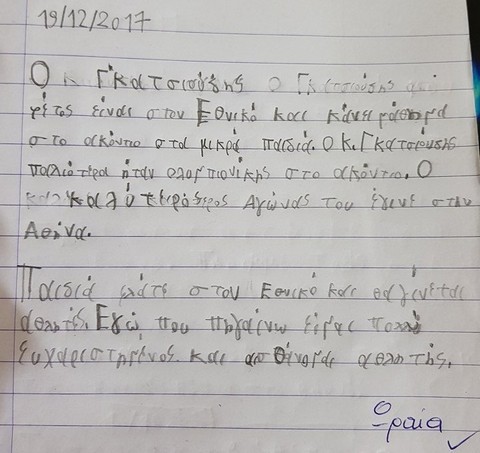 19/12/2017
Ο κ Γκατσιούδης ο Γκατσιούδης από
φέτος είναι στον Εθνικό και κάνει μάθημα
στο ακόντιο στα μικρά παιδιά. Ο κ. Γκατσιούδης
παλιότερα ήταν ολυμπιονίκης στο ακόντιο. Ο
Αγώνας του έγινε στην
Αθήνα.
Παιδιά ελάτε στον Εθνικό και θα γίνεται
αθλητές. Εγώ που πηγαίνω είμαι πολύ
ευχαριστημένος και αισθάνομαι αθλητής.
Ωραία